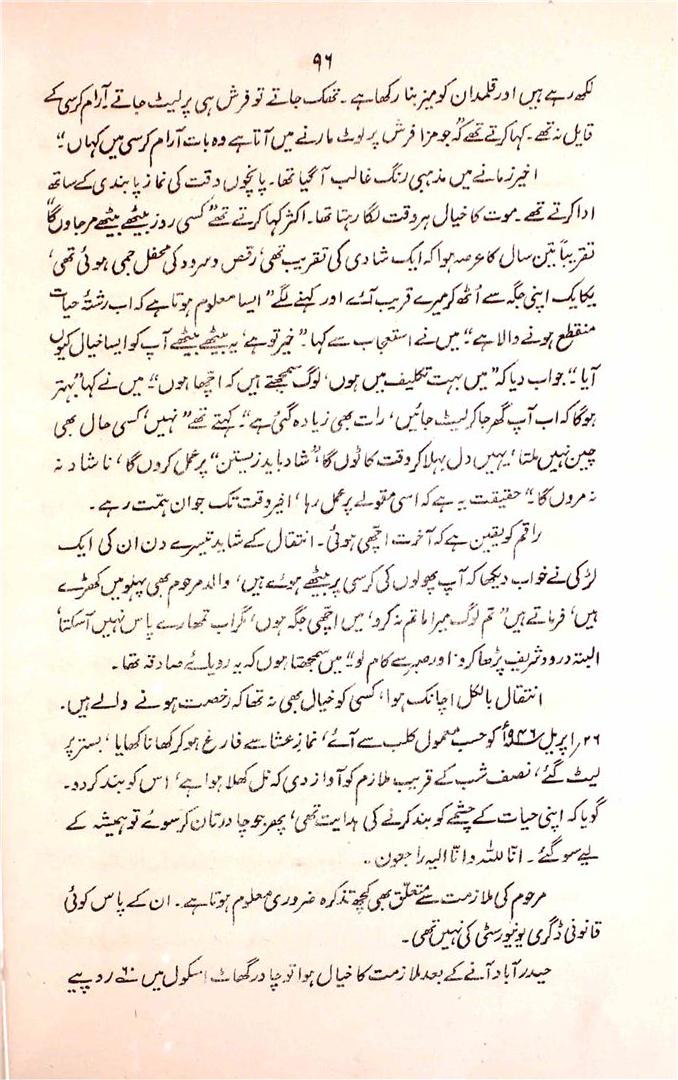 ۹۶
لکھ رہے ہیں اور قلمدان کو میز بنا رکھا ہے۔ تھک جاتے تو فرش ہی پر لیٹ جاتے آرام کرسی کے
قایل نہ تھے۔ کہا کرتے تھے کہ "جو مزا فرش پر لوٹ مارنے میں آتا ہے وہ بات آرام کرسی میں کہاں"
اخیر زمانے میں مذہبی رنگ غالب آ گیا تھا۔ پانچوں وقت کی نماز پابندی کے ساتھ
ادا کرتے تھے۔ موت کا خیال ہر وقت لگا رہتا تھا۔ اکثر کہا کرتے تھے "کسی روز بیٹھے بیٹھے مر جاوں گا"
تقریباً تین سال کا عرصہ ہوا کہ ایک شادی کی تقریب تھی، رقص و سرود کی محفل جمی ہوئی تھی،
یکایک اپنی جگہ سے اُٹھ کر میرے قریب آئے اور کہنے لگے "ایسا معلوم ہوتا ہے کہ اب رشتۂ حیات
منقطع ہونے والا ہے" میں نے استعجاب سے کہا۔ "خیر تو ہے، یہ بیٹھے بیٹھے آپ کو ایسا خیال کیوں
آیا" جواب دیا کہ "میں بہت تکلیف میں ہوں، لوگ سمجھتے ہیں کہ اچھا ہوں" میں نے کہا "بہتر
ہوگا کہ اب آپ گھر جا کر لیٹ جائیں، رات بھی زیادہ گئی ہے"۔ کہتے تھے "نہیں، کسی حال بھی
چین نہیں ملتا، یہیں دل بہلا کر وقت کاٹوں گا، "شاد باید زیستن" پر عمل کروں گا، ناشاد نہ
نہ مروں گا"۔ حقیقت یہ ہے کہ اسی مقولے پر عمل رہا، اخیر وقت تک جوان ہمّت رہے۔
راقم کو یقین ہے کہ آخرت اچھی ہوئی۔ انتقال کے شاید تیسرے دن ان کی ایک
لڑکی نے خواب دیکھا کہ آپ پھولوں کی کرسی پر بیٹھے ہوئے ہیں، والد مرحوم بھی پہلو میں کھڑے
ہیں، فرماتے ہیں "تم لوگ میرا ماتم نہ کرو، میں اچھی جگہ ہوں، مگر اب تمھارے پاس نہیں آ سکتا،
البتہ درود شریف پڑھا کرو اور صبر سے کام لو"۔ میں سمجھتا ہوں کہ یہ رویائے صادقہ تھا۔
انتقال بالکل اچانک ہوا، کسی کو خیال بھی نہ تھا کہ رخصت ہونے والے ہیں۔
۲۶؍اپریل ۱۹۴۶ء کو حسب معمول کلب سے آئے، نماز عشا سے فارغ ہو کر کھانا کھایا، بستر پر
لیٹ گئے، نصف شب کے قریب ملازم کو آواز دی کہ نل کھلا ہوا ہے، اس کو بند کر دو۔
گویا کہ اپنی حیات کے چشمے کو بند کرنے کی ہدایت تھی، پھر جو چادر تان کر سوئے تو ہمیشہ کے
لیے سو گئے۔ انّا للہ و انّا الیہ راجعون۔
مرحوم کی ملازمت سے متعلّق بھی کچھ تذکرہ ضروری معلوم ہوتا ہے۔ ان کے پاس کوئی
قانونی ڈگری یونیورسٹی کی نہیں تھی۔
حیدرآباد آنے کے بعد ملازمت کا خیال ہوا تو چادر گھاٹ اسکول میں روپیے